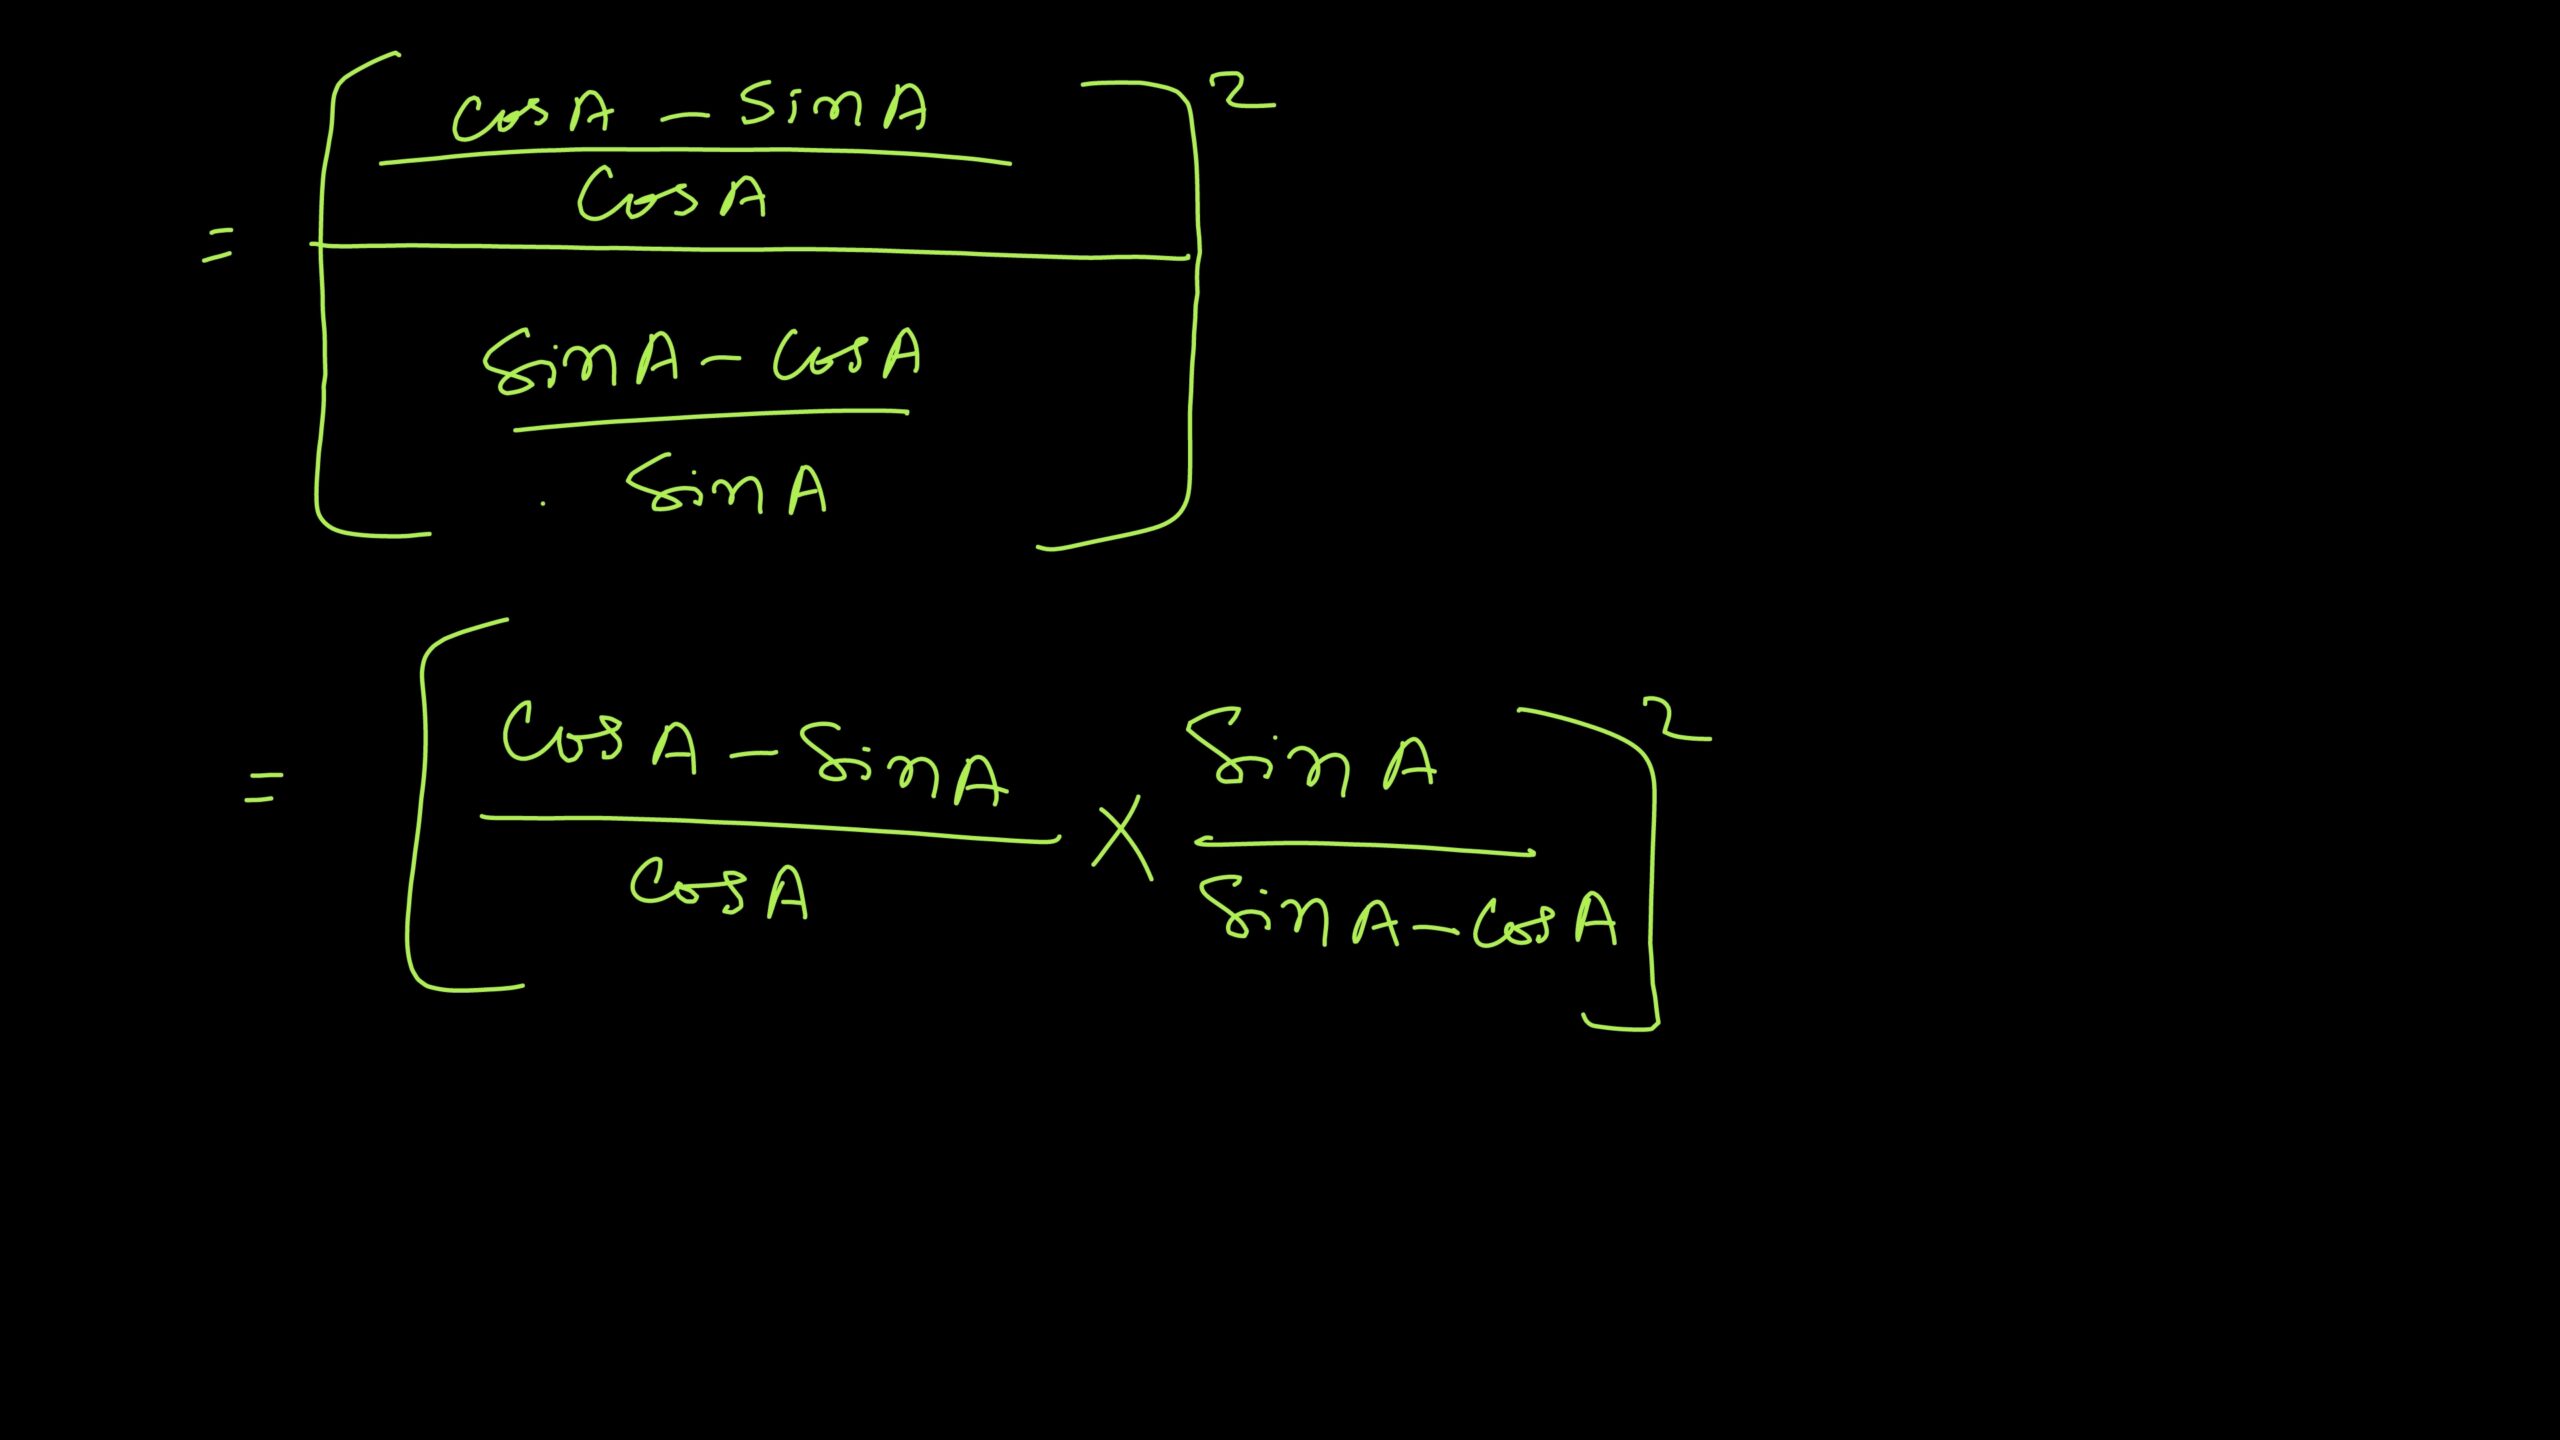 cosA - SinA 2
CosA
=
SinA - CosA
SinA
CosA - SinA SinA 2
= ×
CosA SinA - CosA